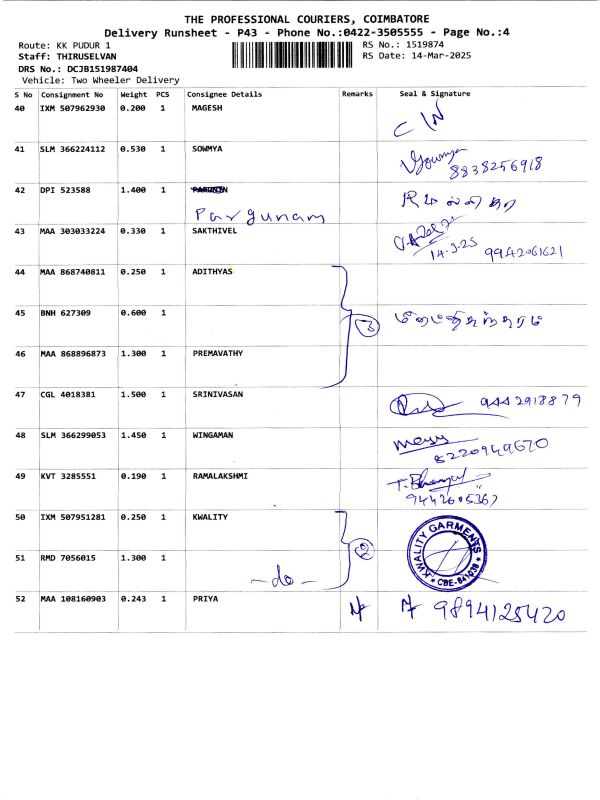 THE PROFESSIONAL COURIERS, COIMBATORE
Delivery Runsheet - P43 - Phone No.:0422-3505555 - Page No.:4
Route: KK PUDUR 1
RS No.: 1519874
Staff: THIRUSELVAN
RS Date: 14-Mar-2025
DRS No.: DCJB151987404
Vehicle: Two Wheeler Delivery
S No Consignment No Weight PCS Consignee Details Remarks Seal & Signature
40 IXM 507962930 0.200 1 MAGESH
41 SLM 366224112 0.530 1 SOWMYA
8838256918
42 DPI 523588 1.400 1
Pargunam
43 MAA 303033224 0.330 1 SAKTHIVEL
14-3-25 9942061621
44 MAA 868740811 0.250 1 ADITHYAS
45 BNH 627309 0.600 1 3
46 MAA 868896873 1.300 1 PREMAVATHY
47 CGL 4018381 1.500 1 SRINIVASAN 9442918879
48 SLM 366299053 1.450 1 WINGAMAN
8220949670
49 KVT 3285551 0.190 1 RAMALAKSHMI
9442605367
50 IXM 507951281 0.250 1 KWALITY
KWALITY GARMENTS
51 RMD 7056015 1.300 1 2
CBE-641038
-do-
52 MAA 108160903 0.243 1 PRIYA 9894125420